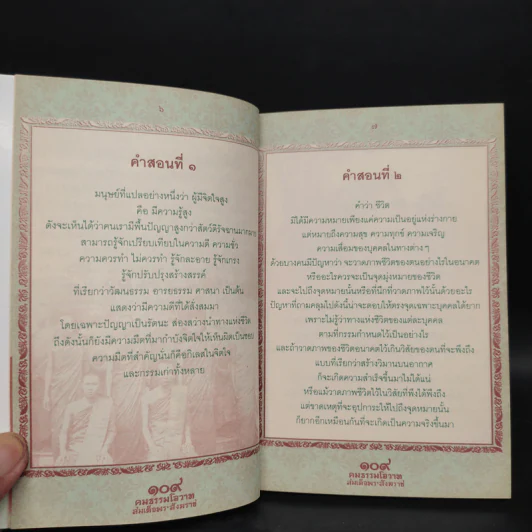 ๖
คำสอนที่ ๑
มนุษย์ที่แปลอย่างหนึ่งว่า ผู้มีจิตใจสูง
คือ มีความรู้สูง
ดังจะเห็นได้ว่าคนเรามีพื้นปัญญาสูงกว่าสัตว์ดิรัจฉานมากมาย
สามารถรู้จักเปรียบเทียบในความดี ความชั่ว
ความควรทำ ไม่ควรทำ รู้จักละอาย รู้จักเกรง
รู้จักปรับปรุงสร้างสรรค์
ที่เรียกว่าวัฒนธรรม อารยธรรม ศาสนา เป็นต้น
แสดงว่ามีความดีที่ได้สั่งสมมา
โดยเฉพาะปัญญาเป็นรัตนะ ส่องสว่างนำทางแห่งชีวิต
ถึงดังนั้นก็ยังมีความมืดที่มากำบังจิตใจให้เห็นผิดเป็นชอบ
ความมืดที่สำคัญนั้นก็คือกิเลสในจิตใจ
และกรรมเก่าทั้งหลาย
๑๐๙
คมธรรมโอวาท
สมเด็จพระสังฆราช
๗
คำสอนที่ ๒
คำว่า ชีวิต
มิได้มีความหมายเพียงแค่ความเป็นอยู่แห่งร่างกาย
แต่หมายถึงความสุข ความทุกข์ ความเจริญ
ความเสื่อมของบุคคลในทางต่างๆ
ด้วยบางคนมีปัญหาว่า จะวาดภาพชีวิตของตนอย่างไรในอนาคต
หรืออะไรควรจะเป็นจุดมุ่งหมายของชีวิต
และจะไปถึงจุดหมายนั้นหรือที่นึกที่วาดภาพไว้นั้นด้วยอะไร
ปัญหาที่ถามคลุมไปดังนี้น่าจะตอบให้ตรงจุดเฉพาะบุคคลได้ยาก
เพราะไม่รู้ว่าทางแห่งชีวิตของแต่ละบุคคล
ตามที่กรรมกำหนดไว้เป็นอย่างไร
และถ้าวาดภาพของชีวิตอนาคตไว้เกินวิสัยของตนที่จะพึงถึง
แบบที่เรียกว่าสร้างวิมานบนอากาศ
ก็จะเกิดความสำเร็จขึ้นมาไม่ได้แน่
หรือแม้วาดภาพชีวิตไว้ในวิสัยที่พึงได้พึงถึง
แต่ขาดเหตุที่จะอุปการะให้ไปถึงจุดหมายนั้น
ก็ยากอีกเหมือนกันที่จะเกิดเป็นความจริงขึ้นมา
๑๐๙
คมธรรมโอวาท
สมเด็จพระสังฆราช